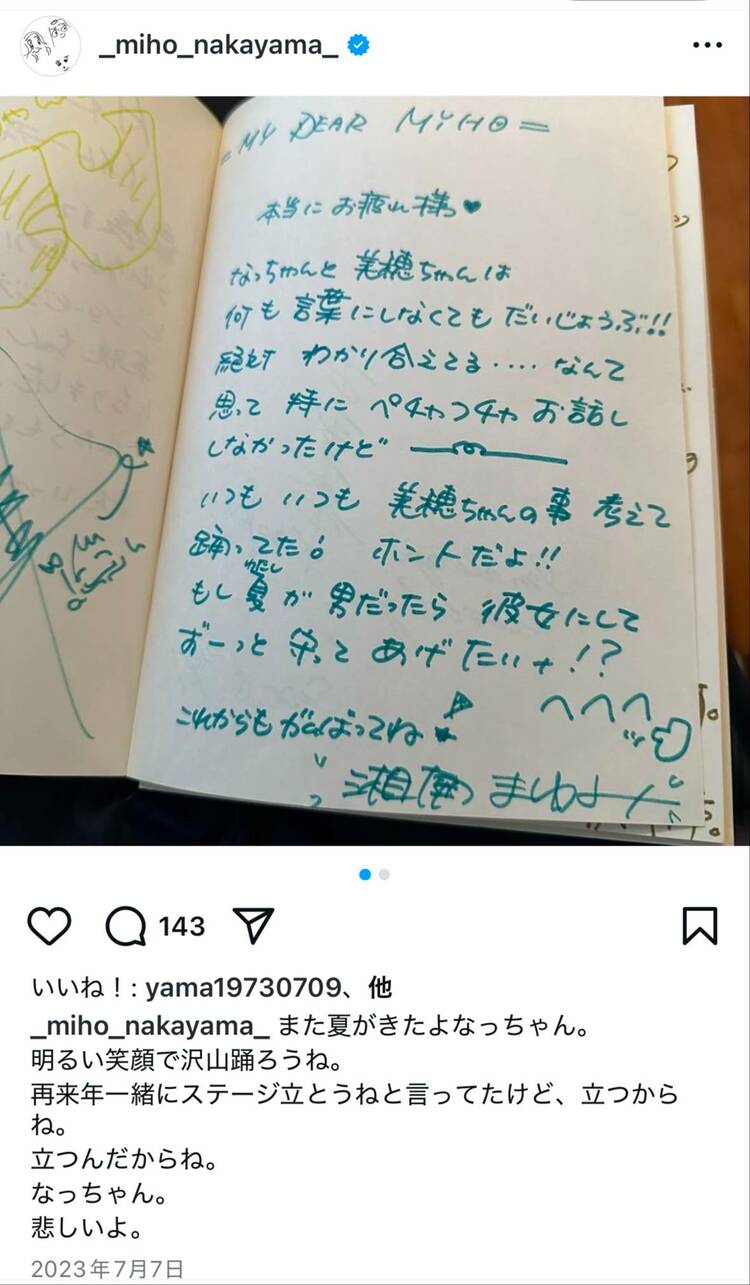 _miho_nakayama_
= MY DEAR MIHO =
本当にお疲れ様っ♥
なっちゃんと 美穂ちゃんは
何も言葉にしなくても だいじょうぶ!!
絶対 わかり合えてる‥‥ なんて
思って 特に ペチャクチャ お話し
しなかったけど
いつも いつも 美穂ちゃんの事 考えて
踊ってた! ホントだよ!!
わたし
もし 夏が 男だったら 彼女にして
ずーっと 守って あげたいナ!?
へへへ
これからも がんばってね
143
いいね！: yama19730709、他
_miho_nakayama_ また夏がきたよなっちゃん。
明るい笑顔で沢山踊ろうね。
再来年一緒にステージ立とうねと言ってたけど、立つから
ね。
立つんだからね。
なっちゃん。
悲しいよ。
2023年7月7日